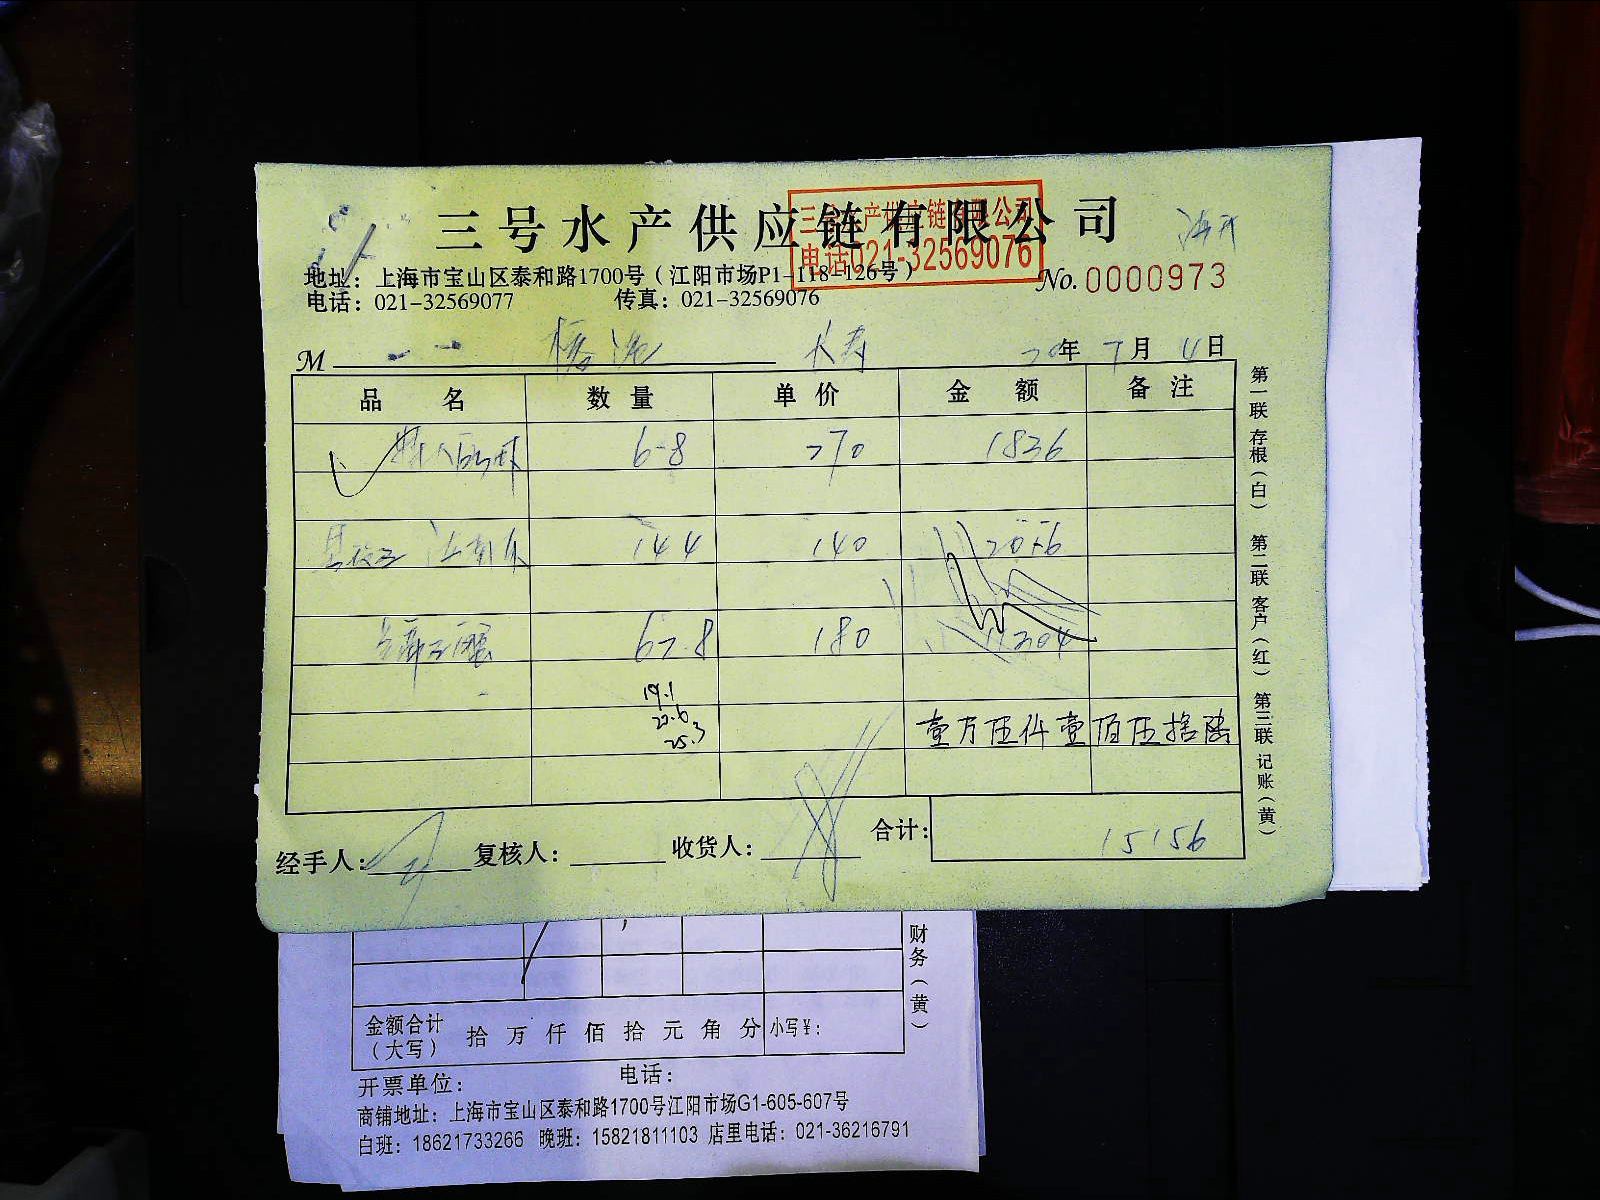 三号水产供应链有限公司
三号水产供应链有限公司
电话021-32569076
地址：上海市宝山区泰和路1700号（江阳市场P1-118-126号）
No. 0000973
电话：021-32569077 传真：021-32569076
M 长寿 20年7月4日
品名 数量 单价 金额 备注
6-8 270 1836
144 140 2016
62.8 180 11304
19.1
25.3
壹万伍仟壹佰伍拾陆
合计： 15156
经手人： 复核人： 收货人：
第一联 存根（白） 第二联 客户（红） 第三联 记账（黄）
财务（黄）
金额合计（大写） 拾 万 仟 佰 拾 元 角 分 小写¥：
开票单位： 电话：
商铺地址：上海市宝山区泰和路1700号江阳市场G1-605-607号
白班：18621733266 晚班：15821811103 店里电话：021-36216791